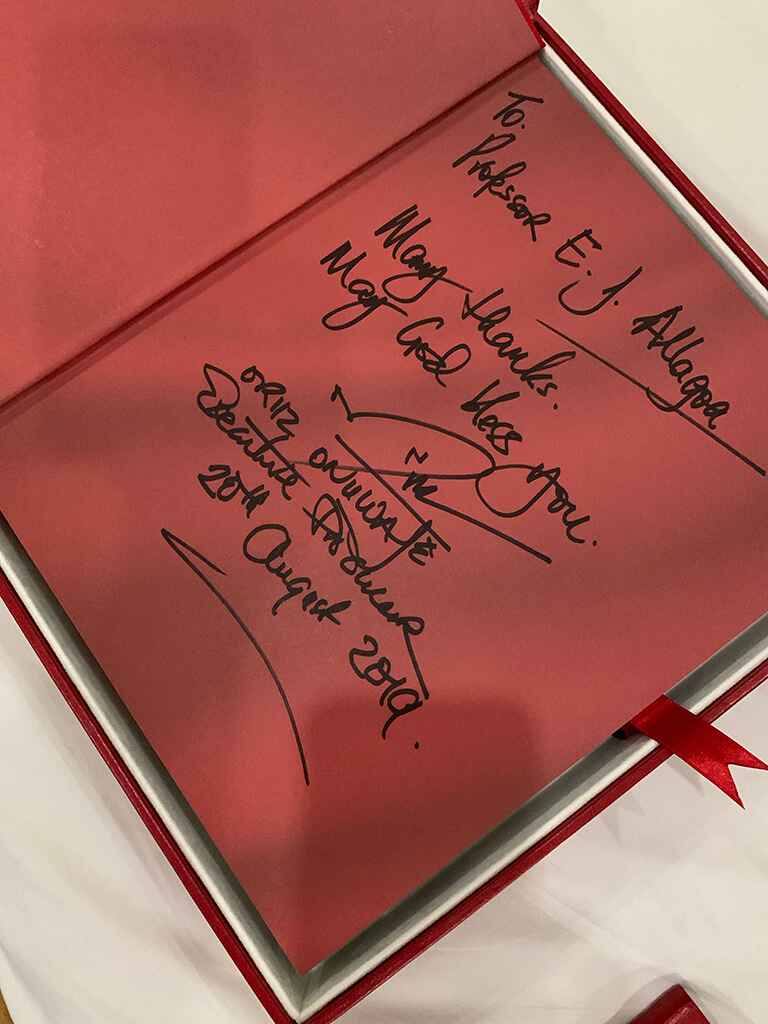 To.
Professor E. J. Allagoa
Many thanks.
May God bless you.
ORIIZ ONUWAJE
Executive Producer
20th August 2019.